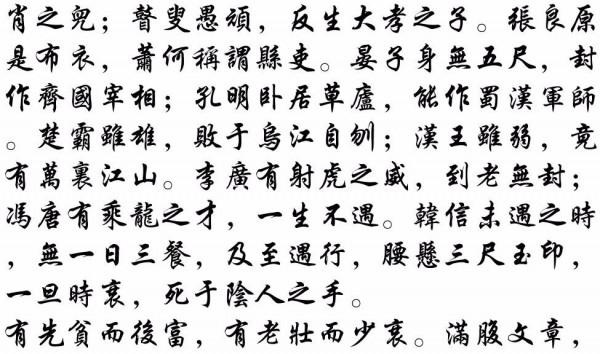 肖之兒；瞽叟愚頑，反生大孝之子。張良原
是布衣，蕭何稱謂縣吏。晏子身無五尺，封
作齊國宰相；孔明卧居草廬，能作蜀漢軍師
。楚霸雖雄，敗于烏江自刎；漢王雖弱，竟
有萬裏江山。李廣有射虎之威，到老無封；
馮唐有乘龍之才，一生不遇。韓信未遇之時
，無一日三餐，及至遇行，腰懸三尺玉印，
一旦時衰，死于陰人之手。
有先貧而後富，有老壯而少衰。滿腹文章，